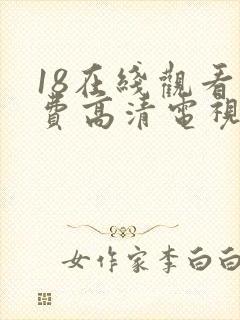 18在綫觀看
費高清電視
女作家李白白